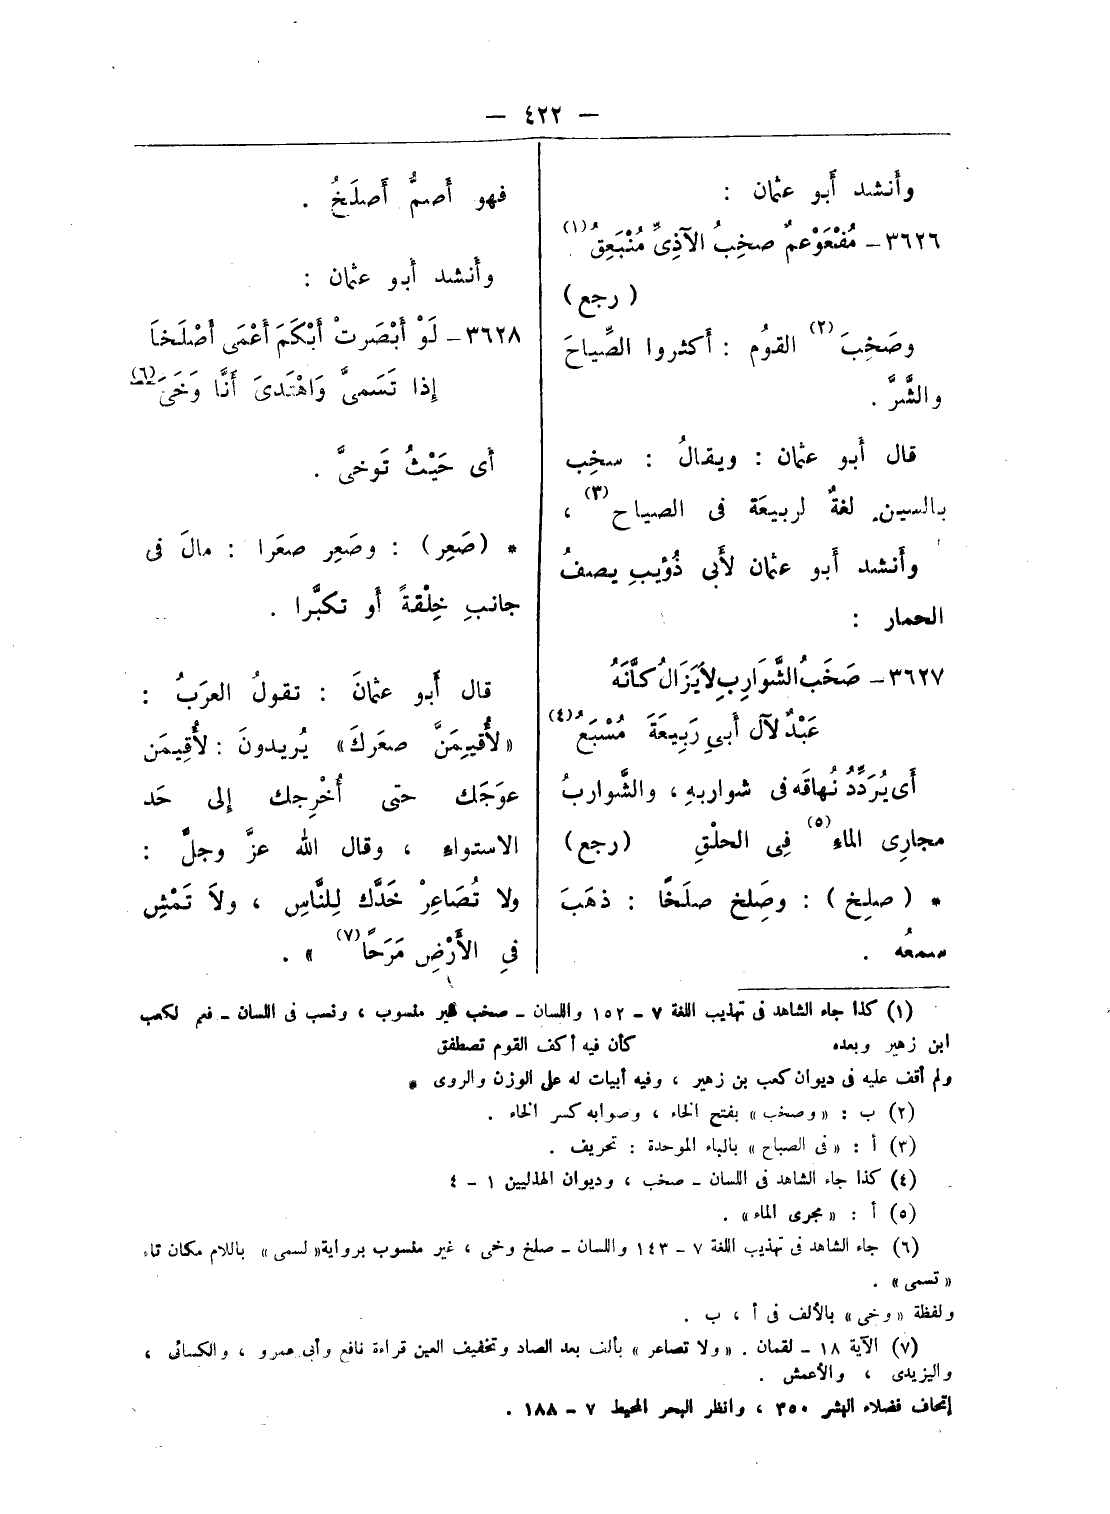 — ٤٢٢ —
وأنشد أبو عثمان :
٣٦٢٦ – مُفْعَوْعمٌ صخِبُ الآذِىِّ مُنْبَعِقُ (١)
( رجع )
وصَخِبَ (٢) القومُ : أكثروا الصِّياحَ
والشَّرَّ .
قال أبو عثمان : ويقالُ : سخِب
بالسين لغةٌ لربيعَة فى الصياح (٣) ،
وأنشد أبو عثمان لأبى ذُؤيبِ يصفُ
الحمار :
٣٦٢٧ – صَخَبُ الشَّوَارِبِ لاَيَزَالُ كأَنَّهُ
عَبْدٌ لآل أَبىِ رَبِيعَةَ مُسْبَعُ (٤)
أَى يُرَدِّدُ نُهاقَه فى شواربهِ ، والشَّواربُ
مجارِى الماءِ (٥) فِى الحلْقِ (رجع)
* ( صلِخ ) : وصَلِخ صلَخًا : ذهَبَ
سمعُه .
فهو أَصمُّ أَصلَخُ .
وأنشد أبو عثمان :
٣٦٢٨ – لَوْ أَبْصَرتْ أَبْكَمَ أَعْمَى أَصْلَخاَ
إذا تَسَمىَّ وَاهْتَدىَ أَنَّا وَخَىَ (٦)
أى حَيْثُ تَوخىَّ .
* (صَعِر) : وصَعِر صعَرا : مالَ فى
جانبِ خِلْقةً أو تكبُّرا .
قال أَبو عثمانَ : تقولُ العرَبُ :
«لأُقيِمَنَّ صعَركَ» يُريدونَ : لأُقِيمَن
عوَجَك حتى أُخْرِجك إلى حَد
الاستواءِ ، وقال الله عزَّ وجلَّ :
ولا تُصَاعِرْ خَدَّك لِلنَّاسِ ، ولاَ تَمْشِ
فىِ الأَرْضِ مَرَحًا (٧) » .
(١) كذا جاء الشاهد فى تهذيب اللغة ٧ – ١٥٢ واللسان – صخب غير منسوب ، ونسب فى اللسان – فعم لكعب
ابن زهير وبعده كأن فيه أكف القوم تصطفق
ولم أقف عليه فى ديوان كعب بن زهير ، وفيه أبيات له على الوزن والروى *
(٢) ب : «وصخب» بفتح الخاء ، وصوابه كسر الخاء .
(٣) أ : «فى الصباح» بالباء الموحدة : تحريف .
(٤) كذا جاء الشاهد فى اللسان – صخب ، وديوان الهذليين ١ – ٤
(٥) أ : «مجرى الماء» .
(٦) جاء الشاهد فى تهذيب اللغة ٧ – ١٤٣ واللسان – صلخ وخى ، غير منسوب برواية «لسمى» باللام مكان تاء
«تسمى» .
ولفظة «وخى» بالألف فى أ ، ب .
(٧) الآية ١٨ – لقمان . «ولا تصاعر» بألف بعد الصاد وتخفيف العين قراءة نافع وأبى عمرو ، والكسائى ،
واليزيدى ، والأعمش .
إتحاف فضلاء البشر ٣٥٠ ، وانظر البحر المحيط ٧ – ١٨٨ .